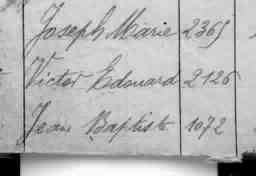 Joseph Marie 2365
Victor Edouard 2126
Jean Baptiste 1072